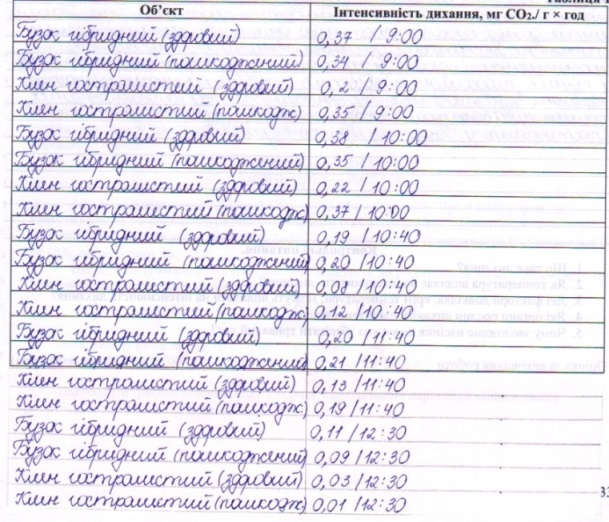 Таблиця 1
Об’єкт Інтенсивність дихання, мг CO₂./ г × год
Бузок гібридний (здоровий) 0,37 / 9:00
Бузок гібридний (пошкоджений) 0,34 / 9:00
Клен гостролистий (здоровий) 0,2 / 9:00
Клен гостролистий (пошкодж) 0,35 / 9:00
Бузок гібридний (здоровий) 0,38 / 10:00
Бузок гібридний (пошкоджений) 0,35 / 10:00
Клен гостролистий (здоровий) 0,22 / 10:00
Клен гостролистий (пошкодж) 0,37 / 10:00
Бузок гібридний (здоровий) 0,19 / 10:40
Бузок гібридний (пошкоджений) 0,20 / 10:40
Клен гостролистий (здоровий) 0,08 / 10:40
Клен гостролистий (пошкодж) 0,12 / 10:40
Бузок гібридний (здоровий) 0,20 / 11:40
Бузок гібридний (пошкоджений) 0,21 / 11:40
Клен гостролистий (здоровий) 0,13 / 11:40
Клен гостролистий (пошкодж) 0,19 / 11:40
Бузок гібридний (здоровий) 0,11 / 12:30
Бузок гібридний (пошкоджений) 0,09 / 12:30
Клен гостролистий (здоровий) 0,03 / 12:30
Клен гостролистий (пошкодж) 0,01 / 12:30
33